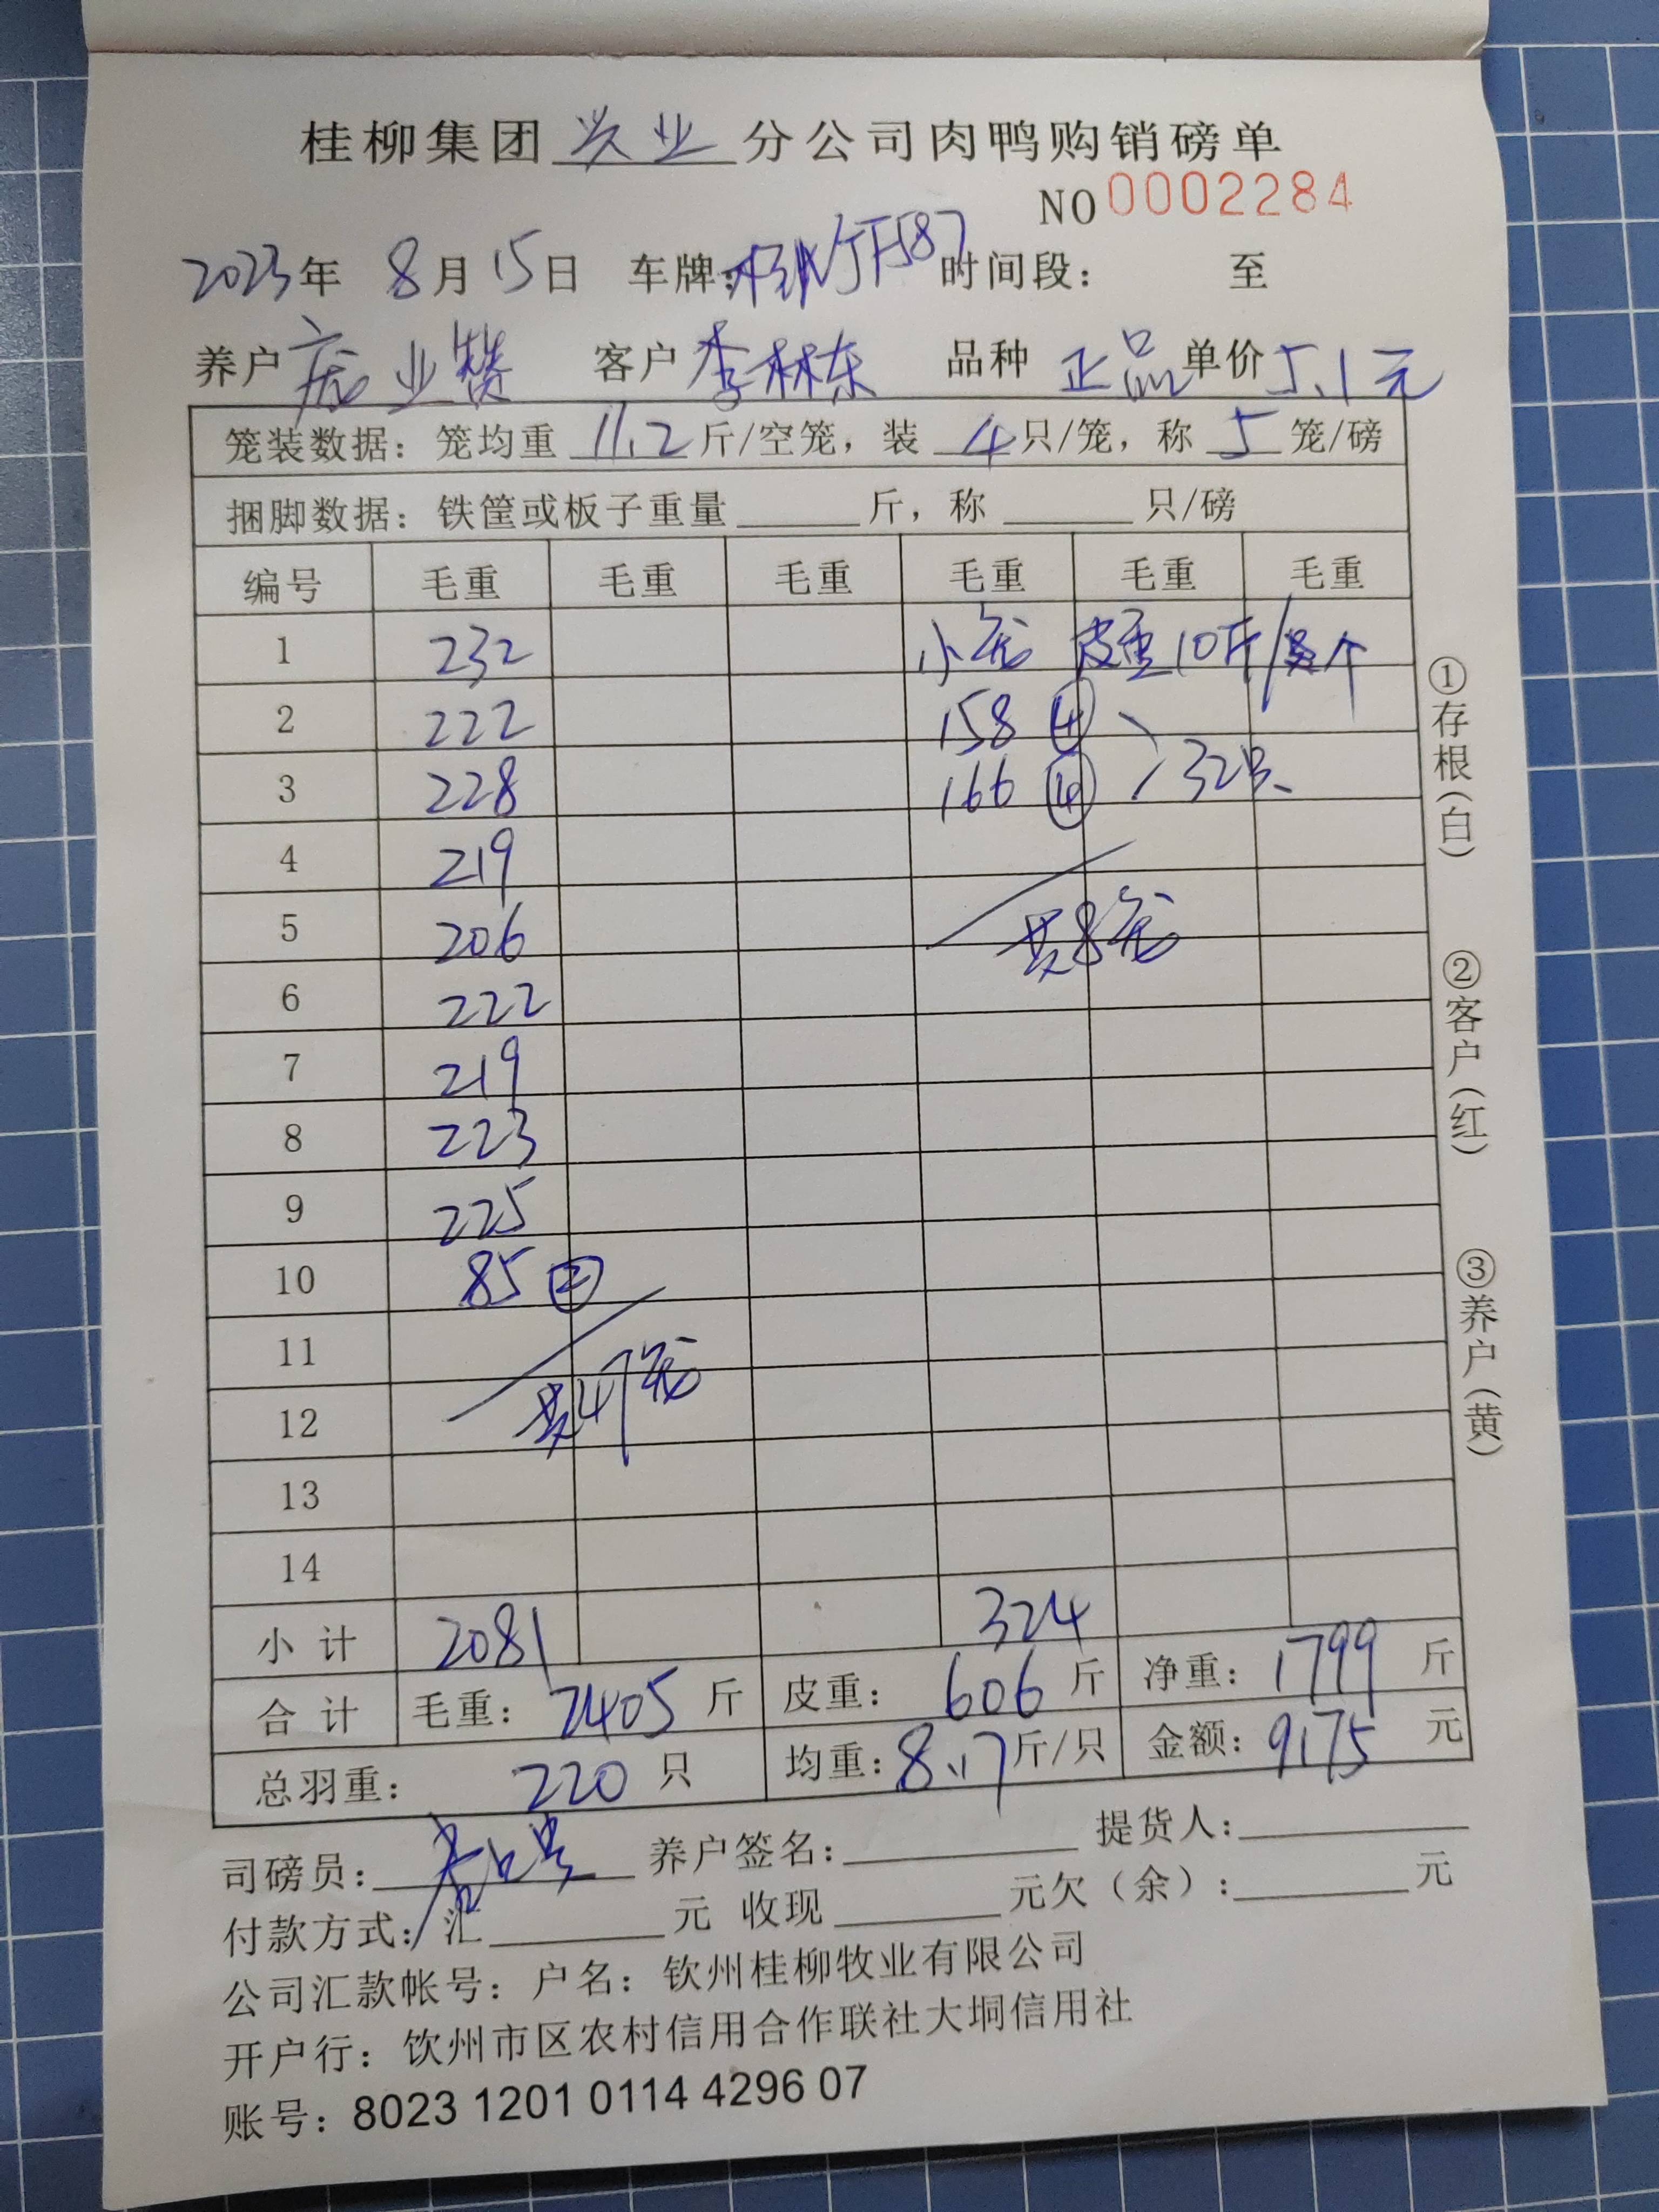 桂柳集团 兴业 分公司肉鸭购销磅单
NO 0002284
2023年 8月 15日 车牌: JF587 时间段: 至
养户 庞业赞 客户 李林东 品种 正品 单价 5.1元
笼装数据: 笼均重 11.2 斤/空笼, 装 4 只/笼, 称 5 笼/磅
捆脚数据: 铁筐或板子重量 斤, 称 只/磅
编号 毛重 毛重 毛重 毛重 毛重 毛重
1 232 小笼 皮重10斤/个
2 222 158 ④
3 228 166 ④ 32只
4 219
5 206 共8笼
6 222
7 219
8 223
9 225
10 85 ②
11
12 共47笼
13
14
小计 2081 324
合计 毛重: 2405 斤 皮重: 606 斤 净重: 1799 斤
总羽重: 220 只 均重: 8.17 斤/只 金额: 9175 元
司磅员: 养户签名: 提货人:
付款方式: 汇 元 收现 元欠(余): 元
公司汇款帐号: 户名: 钦州桂柳牧业有限公司
开户行: 钦州市区农村信用合作联社大垌信用社
账号: 8023 1201 0114 4296 07
①存根(白)
②客户(红)
③养户(黄)